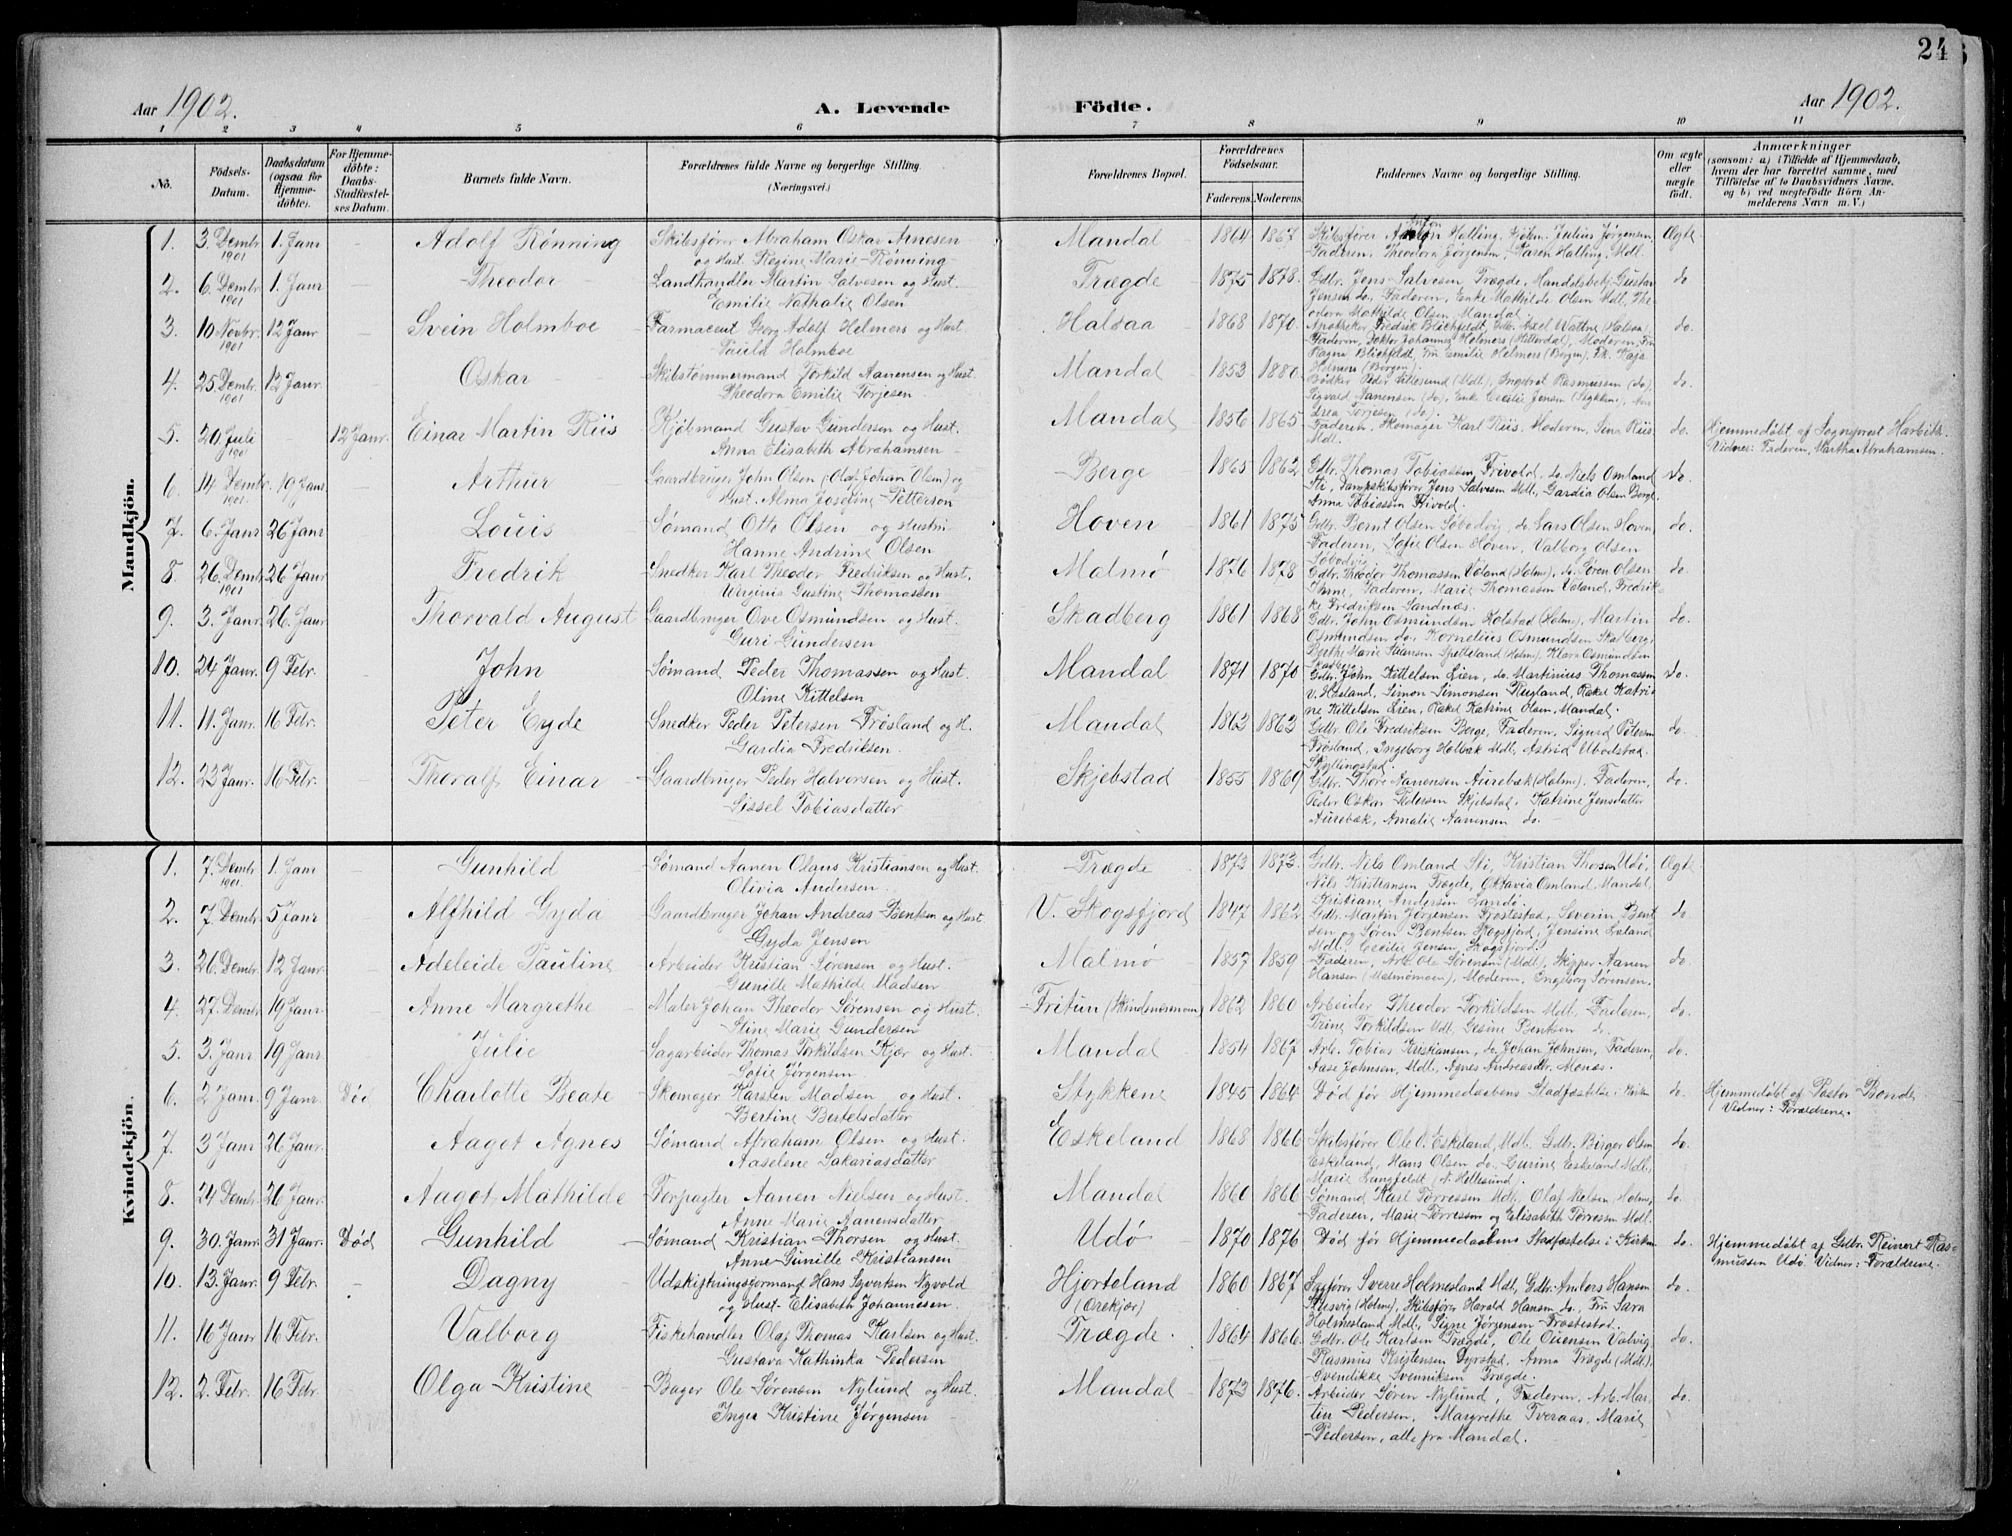 24
Aar 1902. A. Levende Födte. Aar 1902.
1 2 3 4 5 6 7 8 9 10 11
No. Födsels-Datum. Daabsdatum (ogsaa for Hjemme-döbte). For Hjemme-döbte: Daabs-Stadfæstel-ses Datum. Barnets fulde Navn. Forældrenes fulde Navne og borgerlige Stilling. (Næringsvei.) Forældrenes Bopæl. Forældrenes Födselsaar. Faderens. Moderens. Faddernes Navne og borgerlige Stilling. Om ægte eller uægte födt. Anmærkninger (saasom: a) i Tilfælde af Hjemmedaab, hvem der har forrettet samme, med Tilföielse af to Daabsvidners Navne, og b) ved uegtefödte Börn An-melderens Navn m. V.)
Mandkjön.
1. 3. Dembr. 1901 1. Janr Adolf Rønning Skibsfører Abraham Oskar Arnesen
og Hust. Regine Marie Rønning Mandal 1864 1867 Skibsfører Anton Halling, Kjøbm. Julius Jørgensen,
Faderen, Theodora Jørgensen, Maren Halling, Mdl. Ægte
2. 6. Dembr. 1901 1. Janr Theodor Landhandler Martin Salvesen og Hust.
Emilie Nathalie Olsen Trægde 1875 1878. Gdbr. Jens Salvesen Trægde, Handelsbetj. Gustav
Jensen do, Faderen, Enke Mathilde Olsen Mdl. The
odora Mathilde Olsen, Mandal. do
3. 10 Novbr. 1901 12 Janr Svein Holmboe Farmaceut Georg Adolf Helmers og Hust.
Holmboe Halsaa 1868 1870. Apotheker Fredrik Blichfeldt, Gdbr. Axel Wattne (Halsaa),
Faderen, Doktor Johannes Helmers (Hitterdal), Moderen, Fru
Ragna Blichfeldt, Fru Emilie Helmers (Bergen), Frk. Kaja
Helmers (Bergen). do.
4. 25 Dembr. 1901 12 Janr. Oskar Skibstømmermand Torkild Aanensen og Hust.
Theodora Emilie Torjesen Mandal 1853 1880 Bødker Peder Lillesund (Mdl), Ingebret Rasmussen (do),
Sigvald Aanensen (do), Enke Cecilie Jensen (Stykken), An-
drea Torjesen (do). do.
5. 20. Juli 1901 12 Janr. Einar Martin Riis Kjøbmand Gustav Gundersen og Hust.
Anna Elisabeth Abrahamsen Mandal 1856 1865 Faderen, Skomager Karl Riis, Moderen, Sina Riis
Mdl. do. Hjemmedøbt af Sogneprest Harbitz.
Vidner: Faderen, Martha Abrahamsen.
6. 14 Dembr. 1901. 19 Janr. Arthur Gaardbruger John Olsen (Olaf Johan Olsen) og
Hust. Alma Josefine Petterson Berge 1865 1862 Gdbr. Thomas Tobiassen Frivold, do. Niels Omland
Sti, Dampskibsfører Jens Salvesen Mdl., Gardia Olsen Berge,
Anna Tobiassen Frivold. do.
7. 6. Janr 26 Janr Louis Sømand Otto Olsen og Hustru
Hanne Andrine Olsen Hoven 1861 1875 Gdbr. Bernt Olsen Søbodvig, do. Lars Olsen Hoven,
Faderen, Sofie Olsen Hoven, Valborg Olsen
Søbodvig. do.
8 26. Dembr. 1901 26 Janr Fredrik Snedker Karl Theodor Fredriksen og Hust.
Virginia Gustine Thomassen Malmø 1876 1878 Gdbr. Theodor Thomassen Voland (Holme), do. Søren Olsen
Faderen, Marie Thomassen Voland, Fredrik-
ke Fredriksen Sandnæs. do.
9. 3. Janr. 26. Janr Thorvald August Gaardbruger Ove Osmundsen og Hust.
Guri Gundersen Skadberg 1861 1868 Gdbr. John Osmundsen Holstad (Holme), Martin
Osmundsen do. Kornelius Osmundsen Skaberg,
Berthe Marie Spetteland (Holme), Klara Osmundsen
Skadberg. do.
10. 24 Janr. 9 Febr. John Sømand Peder Thomassen og Hust.
Oline Kittelsen Mandal 1871 1870 Gdbr. John Kittelsen Lien, do. Martinius Thomassen
v. Høieland, Simon Simonsen Rugland, Rakel Katri-
ne Kittelsen Lien, Rakel Katrine Olsen, Mandal. do.
11. 11. Janr. 16 Febr. Peter Eyde Snedker Peder Petersen Frøsland og H.
Gardia Fredriksen. Mandal 1862 1863 Gdbr. Ole Fredriksen Berge, Faderen, Sigurd Petersen
Frøsland, Ingeborg Holbæk Mdl., Astrid Ubostad
Skyllingstad. do.
12. 23 Janr. 16 Febr. Thoralf Einar Gaardbruger Peder Halvorsen og Hust.
Sissel Tobiasdatter Skjebstad 1855 1869 Gdbr. Thore Aanensen Aurebæk (Holme), Faderen,
Peder Oskar Pedersen Skjebstad, Katrine Jensdatter
Aurebæk, Amalie Aanensen do. do.
Kvindekjön.
1. 7. Dembr 1901. 1. Janr Gunhild Sømand Aanen Olaus Kristiansen og Hust.
Olivia Andersen. Trægde 1873 1873. Gdbr. Nils Omland Sti, Kristian Thorsen Udø,
Nils Kristiansen Trægde, Oktavia Omland Mandal,
Kristiane Andersen Landø. Ægte
2. 7. Dembr. 5 Janr Alfhild Gyda Gaardbruger Johan Andreas Bentsen og Hust.
Gyda Jensen V. Skogsfjord 1847 1862 Gdbr. Martin Jørgensen Frostestad, Severin Bent
sen og Søren Bentsen Skogsfjord, Jensine Leland
Mdl. Cecilie Jensen, Skogsfjord. do
3. 26. Dembr. 12 Janr. Adeleide Pauline Arbeider Kristian Sørensen og Hust.
Gunille Mathilde Madsen Malmø 1857 1859 Faderen, Arb. Ole Sørensen (Mdl), Skipper Aanen
Hansen (Malmømoen), Moderen, Engeborg Sørensen. do.
4. 27. Dembr. 19 Janr Anne Margrethe Maler Johan Theodor Sørensen og Hust.
Stine Marie Gundersen Fritun (Skindsnesmoen) 1862 1860 Arbeider Theodor Torkildsen Mdl. Faderen,
Trine Torkildsen Mdl. Gesine Bentsen do. do.
5. 3. Janr 19 Janr. Julie Sagarbeider Thomas Torkildsen Kjær og Hust.
Sofie Jørgensen Mandal 1854 1867 Arb. Tobias Kristiansen, do. Johan Johnsen, Faderen,
Aase Johnsen, Mdl., Agnes Andreasdtr. Monæs. do.
6. 2 Janr. 9 Janr. Død Charlotte Beate Skomager Karsten Madsen og Hust.
Bertine Bertelsdatter Stykkene 1845 1864 Død før Hjemmedaabens Stadfæstelse i Kirken do. Hjemmedøbt af Pastor Bonde
Vidner: Forældrene.
7. 3 Janr 26 Janr. Aagot Agnes Sømand Abraham Olsen og Hust.
Aaselene Sakariasdatter Eskeland 1868 1866 Skibsfører Ole O. Eskeland, Mdl. Gdbr. Birger Olsen
Eskeland, Hans Olsen do. Gurine Eskeland Mdl.,
Marie Langfeldt (N. Hellesund). do.
8. 24 Dembr. 26 Janr. Aagot Mathilde Forpagter Aanen Nielsen og Hust.
Anne Marie Aanensdatter Mandal 1860 1866 Sømand Karl Tørressen Mdl., Olaf Nielsen, Holme,
Faderen, Marie Tørressen og Elisabeth Tørressen Mdl. do.
9. 30. Janr. 31 Janr. Død Gunhild Sømand Kristian Thorsen og Hust.
Anne Gunille Kristiansen Udø 1870 1876 Død før Hjemmedaabens Stadfæstelse i Kirken do. Hjemmedøbt af Gdbr. Reinert Ras-
mussen Udø. Vidner: Forældrene.
10. 13. Janr. 9 Febr. Dagny Udskiftningsformand Hans Syvertsen Nyvold
og Hust. Elisabeth Johannesen. Hjorteland
(Orekjær) 1860 1867 Sagfører Sverre Holmesland Mdl, Gdbr. Anders Hansen
(Holme), Skibsfører Harald Hansen do. Fru Sara
Holmesland Mdl., Signe Jørgensen Frostestad. do.
11. 16 Janr 16 Febr. Valborg Fiskehandler Olaf Thomas Karlsen og Hust.
Gustava Kathinka Pedersen Trægde. 1864 1866. Gdbr. Ole Karlsen Trægde, Ole Ouensen Valvig,
Rasmus Kristensen Dyrstad, Anna Trægde (Mdl),
Svendikke Svenniksen Trægde. do.
12. 2. Febr. 16 Febr Olga Kristine Bager Ole Sørensen Nylund og Hust.
Inga Kristine Jørgensen Mandal 1873 1876. Arbeider Søren Nylund, Faderen, Arb. Mar-
tin Pedersen, Margrethe Tveraas, Marie
Pedersen, alle fra Mandal. do.